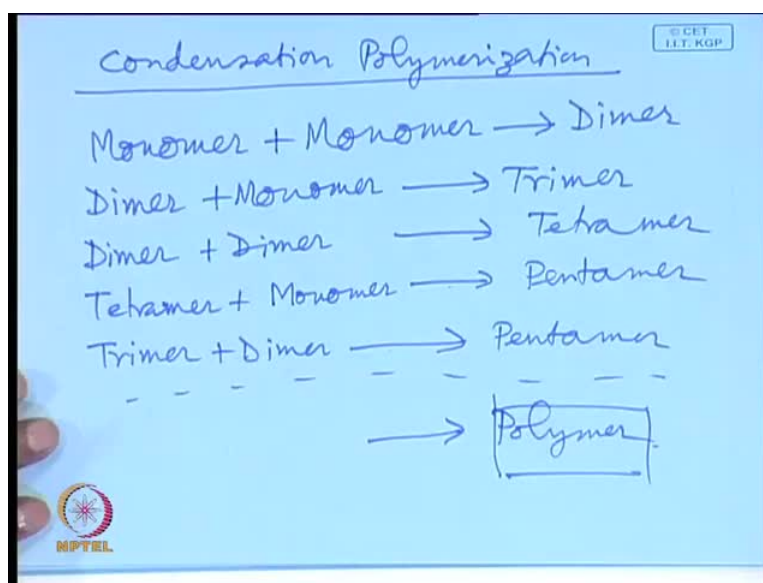 © CET
I.I.T. KGP
Condensation Polymerization
Monomer + Monomer → Dimer
Dimer + Monomer → Trimer
Dimer + Dimer → Tetramer
Tetramer + Monomer → Pentamer
Trimer + Dimer → Pentamer
→ Polymer
NPTEL